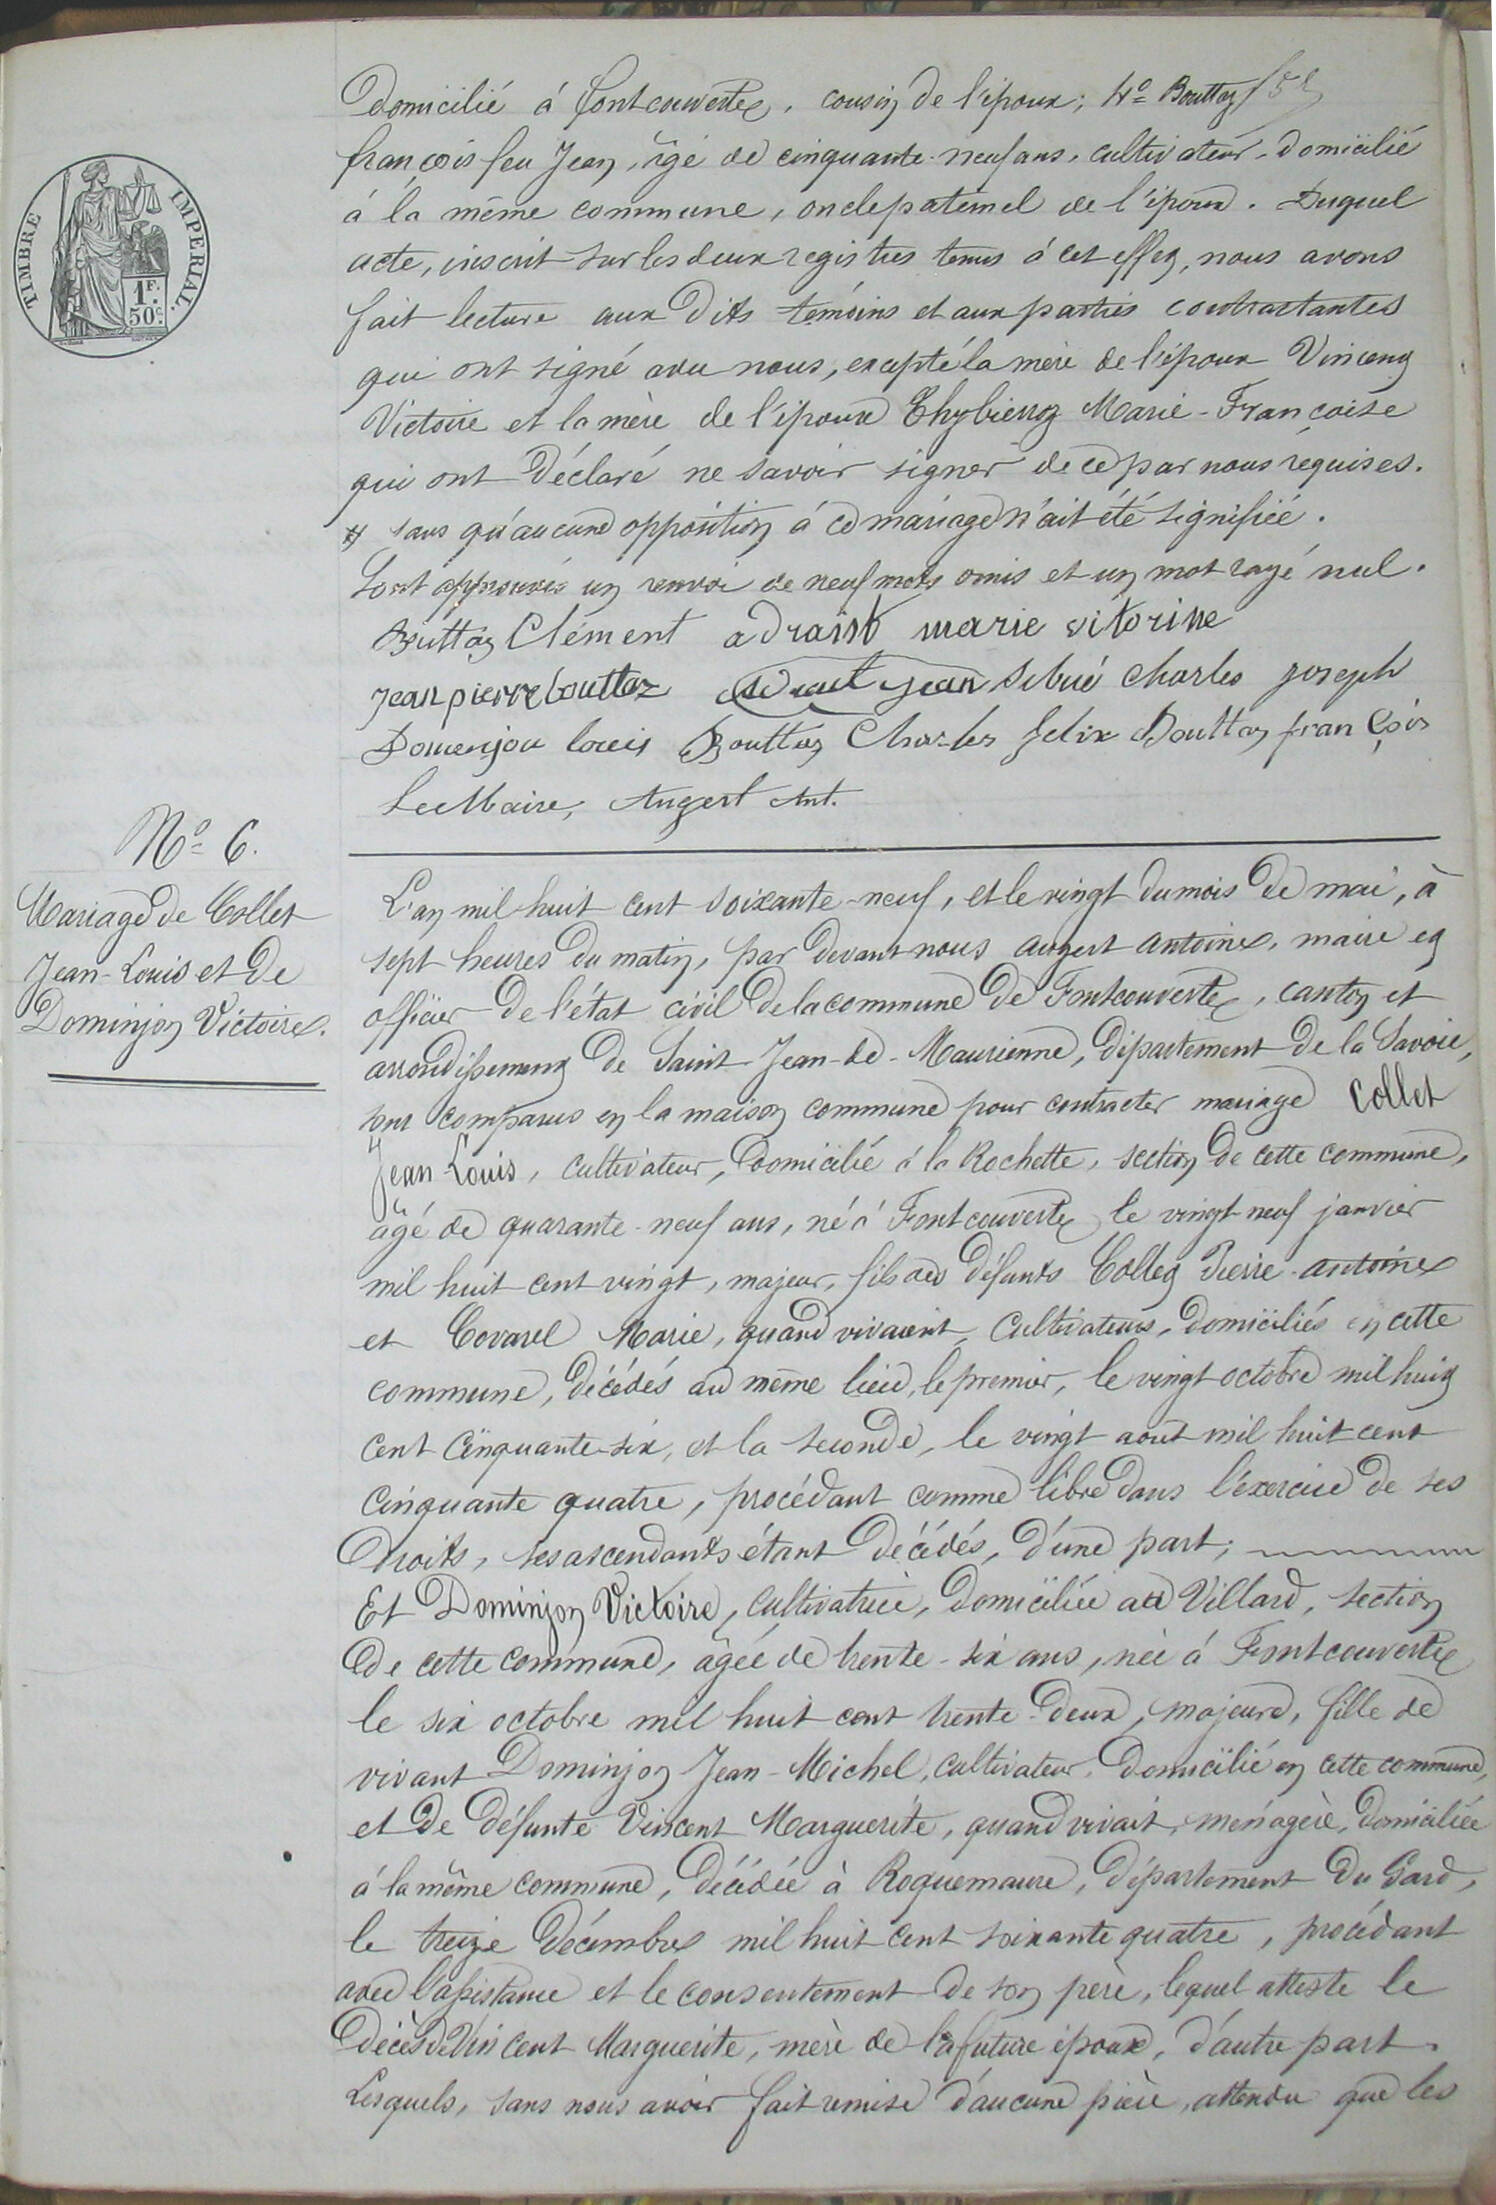 Domicilié à fontcouverte, cousin de l'époux; 4º Bouttaz
françois feu Jean, âgé de cinquante-neuf ans, cultivateur, domicilié
à la même commune, oncle paternel de l'époux. Duquel
acte, inscrit sur les deux registres tenus à cet effet, nous avons
fait lecture aux dits témoins et aux parties contractantes
qui ont signé avec nous, excepté la mère de l'époux Vincent
Victoire et la mère de l'épouse Thybierroz Marie-Françoise
qui ont déclaré ne savoir signer de ce par nous requises.
sans qu'aucune opposition à ce mariage n'ait été signifiée.
Sont approuvés un renvoi de neuf mots omis et un mot rayé nul.
Buttaz Clément adraist marie vitorine
Jean pierre bouttaz jean Sibué Charles joseph
Domenjou louis Bouttaz Charles felix Bouttaz françois
Le Maire, Augert Ant.
TIMBRE IMPERIAL.
1F. 50c.
Nº 6.
Mariage de Collet
Jean-Louis et de
Dominjon Victoire.
L'an mil huit cent soixante-neuf, et le vingt du mois de mai, à
sept heures du matin, par devant nous Augert Antoine, maire et
officier de l'état civil de la commune de Fontcouverte, canton et
arrondissement de Saint-Jean-de-Maurienne, département de la Savoie,
ont comparus en la maison commune pour contracter mariage Collet
Jean-Louis, cultivateur, domicilié à la Rochette, section de cette commune,
âgé de quarante-neuf ans, né à Fontcouverte le vingt-neuf janvier
mil huit cent vingt, majeur, fils des défunts Collet Pierre-antoine
et Covarel Marie, quand vivaient, cultivateurs, domiciliés en cette
commune, décédés au même lieu, le premier, le vingt octobre mil huit
cent cinquante-six, et la seconde, le vingt août mil huit cent
cinquante quatre, procédant comme libre dans l'éxercice de ses
droits, ses ascendants étant décédés, d'une part;
Et Dominjon Victoire, cultivatrice, domiciliée au Villard, section
de cette commune, âgée de trente-six ans, née à Fontcouverte
le six octobre mil huit cent trente-deux, majeure, fille de
vivant Dominjon Jean-Michel, cultivateur, domicilié en cette commune,
et de défunte Vincent Marguerite, quand vivait, ménagère, domiciliée
à la même commune, décédée à Roquemaure, département du Gard,
le treize décembre mil huit cent soixante quatre, procédant
avec l'assistance et le consentement de son père, lequel atteste le
décès de Vincent Marguerite, mère de la future épouse, d'autre part.
Lesquels, sans nous avoir fait remise d'aucune pièce, attendu que les